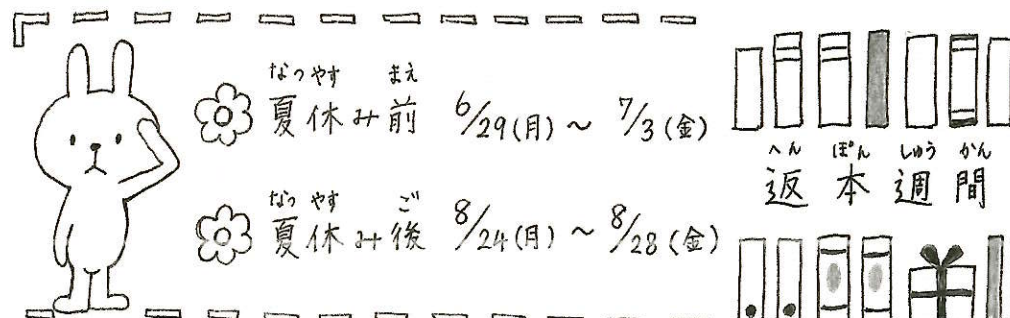 なつやす まえ
夏休み前 6/29(月)~ 7/3(金)
なつ やす ご
夏休み後 8/24(月)~ 8/28(金)
へん ぽん しゅう かん
返本週間